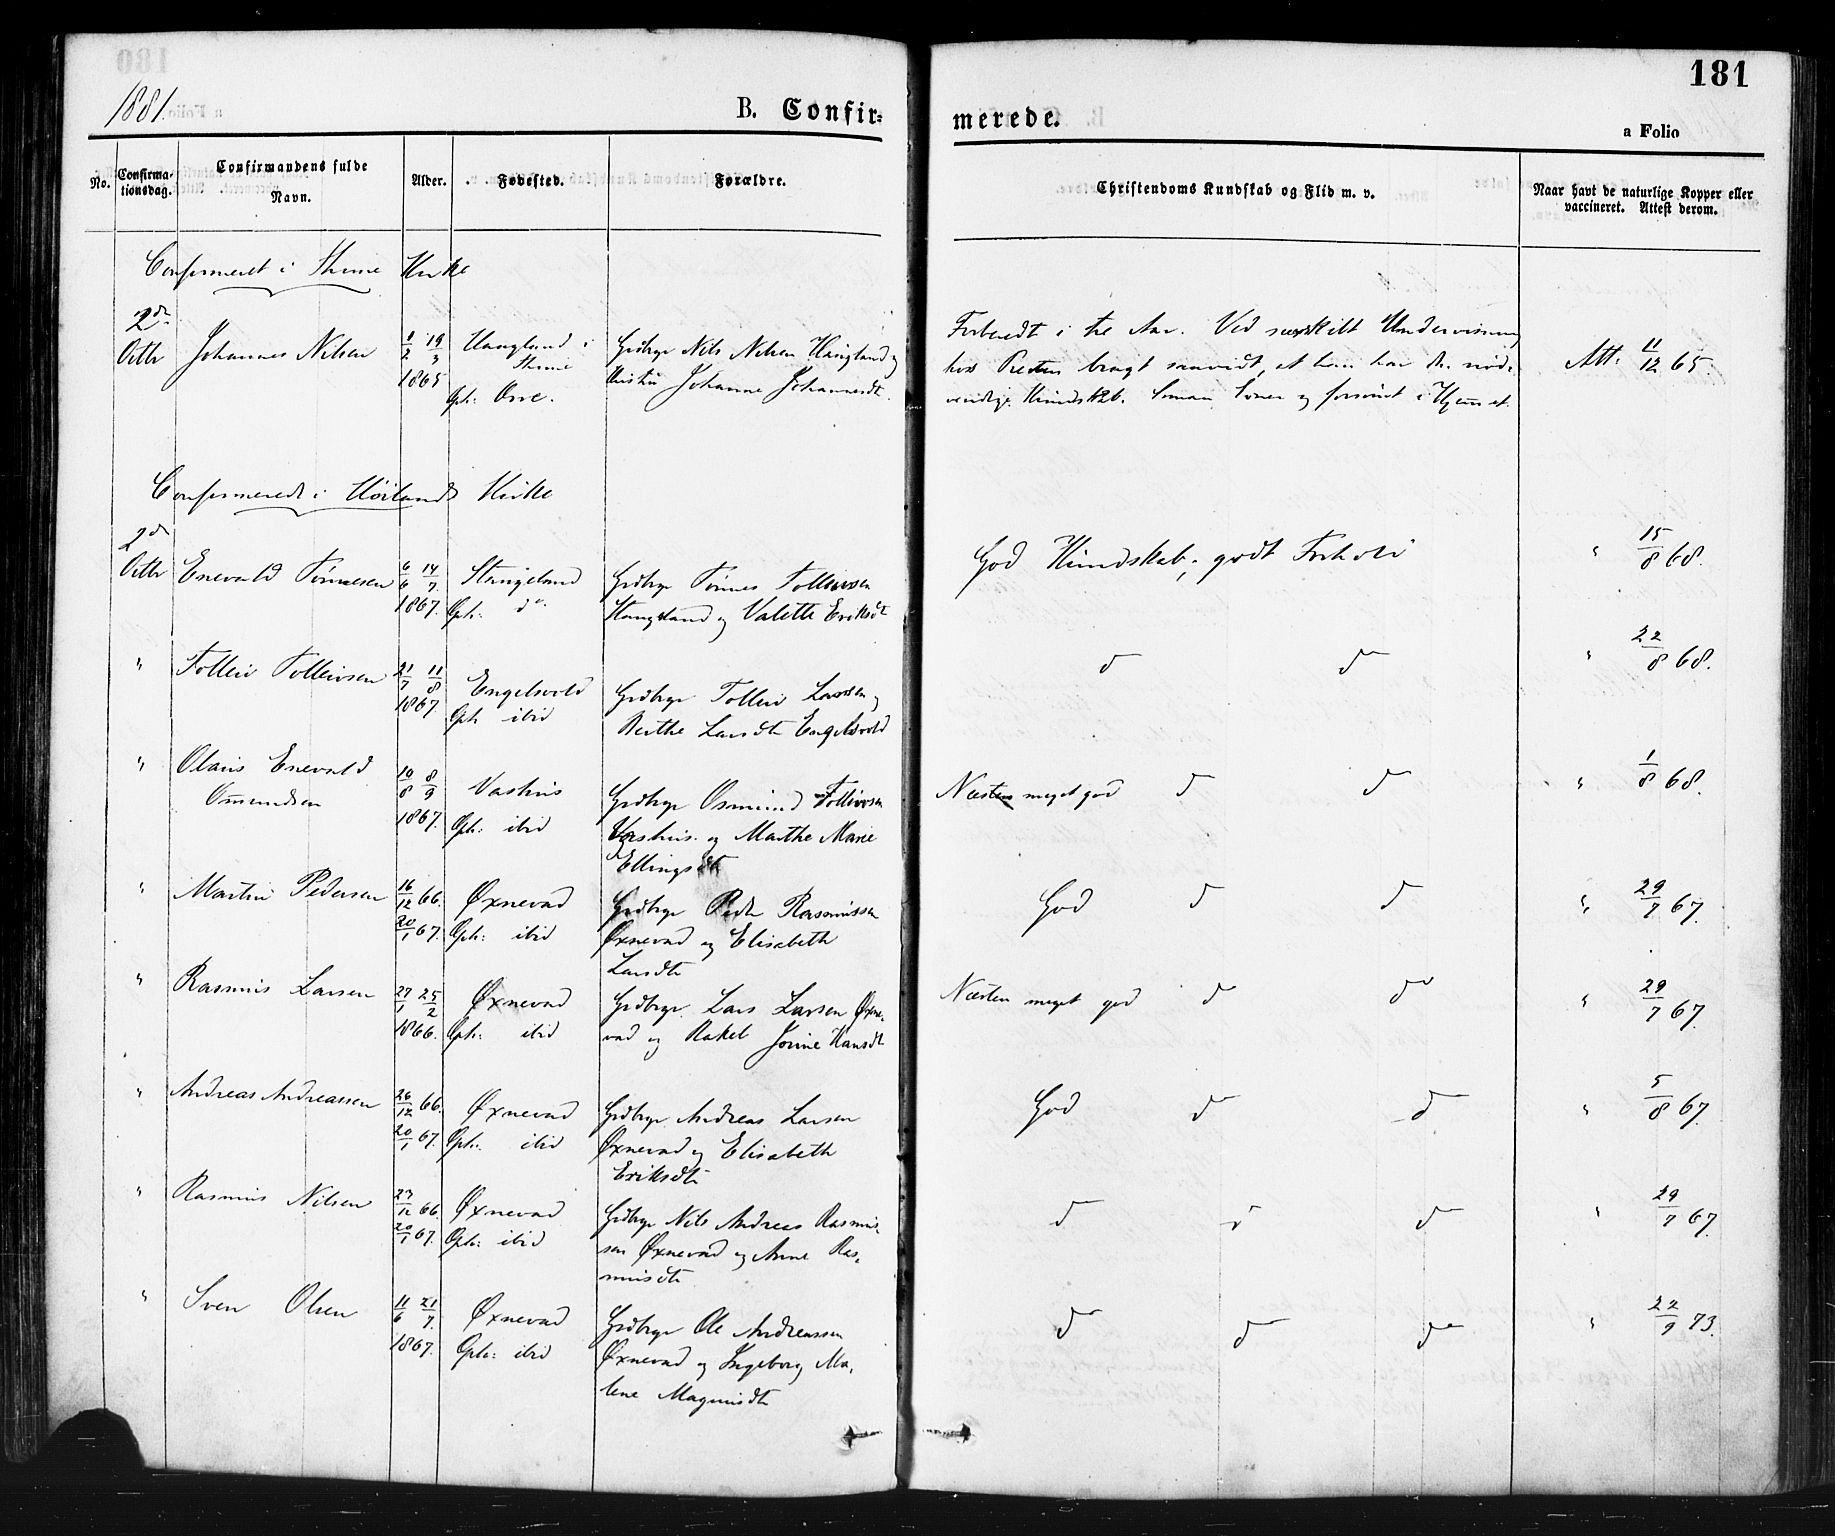 181
1881.
B. Confir=
merede.
a Folio
No.
Confirma-
tionsdag.
Confirmandens fulde
Navn.
Alder.
Fødested.
Forældre.
Christendoms Kundskab og Flid m. v.
Naar havt de naturlige Kopper eller
vaccineret. Attest derom.
Confirmeret i Thime Kirke
2de
Octbr
Johannes Nilsen
1/2 19/3
1865
Haugland i
Thime
Oph: Orre.
Grdbrgr Nils Nilsen Haugland og
Hustru Johanne Johannesdt.
Forberedt i tre Aar. Ved særskilt Undervisning
hos Præsten bragt saavidt, at han har den nød-
vendige Kundskab.
Att: 11/12 65.
Confirmerede i Høilands Kirke
2de
Octbr
Enevald Tønnesen
6/6 14/7
1867.
Stangeland
Oph: do.
Grdbrgr Tønnes Tolleivsen
Stangeland og Valette Eriksdt
God Kundskab, godt Forhold
" 15/8 68.
" Tolleiv Tolleivsen
21/7 11/8
1867.
Engelsvold
Oph ibid
Grdbrgr Tolleiv Larsen og
Berthe Larsdtr Engelsvold
d d
" 22/8 68.
" Olaus Enevald
Omundsen
10/8 8/9
1867.
Vashus
Oph: ibid
Grdbrgr Osmund Tolleivsen
Vashus og Marthe Marie
Ellingsdt
Næsten meget god d d
" 1/8 68.
" Martin Pedersen
16/12 66.
20/1 67.
Øxnevad
Oph: ibid
Grdbrgr Peder Rasmussen
Øxnevad og Elisabeth
Larsdtr
God d d
" 29/7 67.
" Rasmus Larsen
27/1 25/2
1866.
Øxnevad
Oph: ibid
Grdbrgr Lars Larsen Øxne-
vad og Rakel Jorine Hansdt
Næsten meget god d do
" 29/7 67.
" Andreas Andreassen
26/12 66.
20/1 67.
Øxnevad
Oph: ibid
Grdbrgr Andreas Larsen
Øxnevad og Elisabeth
Eriksdtr
God d d
" 5/8 67.
" Rasmus Nilsen
27/12 66.
20/1 67.
Øxnevad
Oph: ibid
Grdbrgr Nils Andreas Rasmus-
sen Øxnevad og Anne Ras-
musdtr
d d d
" 29/7 67.
" Sven Olsen
11/6 21/7.
1867.
Øxnevad
Oph: ibid
Grdbrgr Ole Andreassen
Øxnevad og Ingeborg Ma-
lene Magnusdtr
d d d
" 22/9 73.